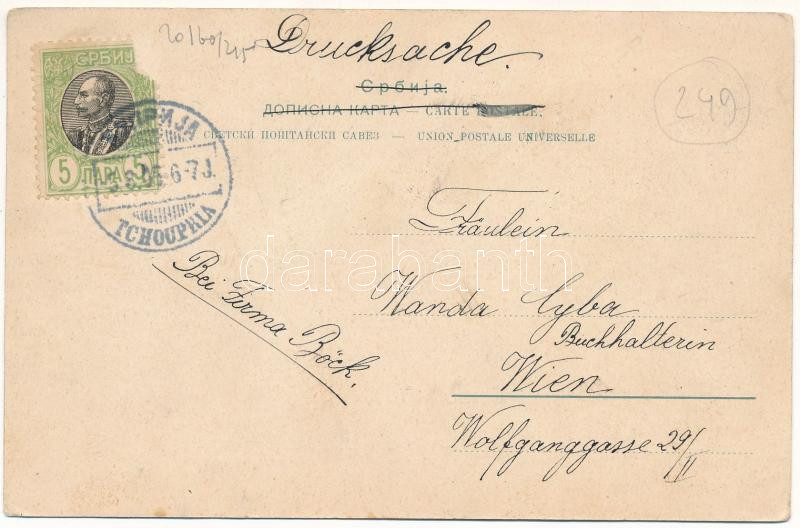 20/60/2,50
Drucksache.
Србија.
ДОПИСНА КАРТА — CARTE POSTALE.
СВЕТСКИ ПОШТАНСКИ САВЕЗ — UNION POSTALE UNIVERSELLE
249
СРБИЈ
5 ПАРА 5
TCHOUPRIA
Fräulein
Wanda Cyba
Buchhalterin
Wien
Wolfganggasse 29/II
Bei Firma Böck.
darabanth